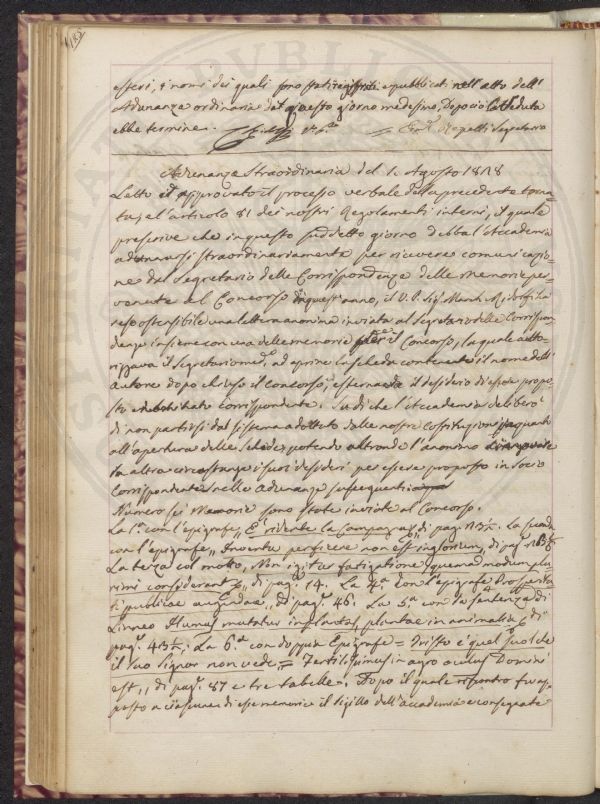 132
esteri, i nomi dei quali sono stati registrati e pubblicati nell'atto dell'
Adunanza ordinaria di questo giorno medesimo. Dopociò la Seduta
ebbe termine.
Segretario
Adunanza Straordinaria del 1. Agosto 1818
Letto ed approvato il processo verbale della precedente torna-
ta, e l'articolo 81 dei nostri Regolamenti interni, il quale
prescrive che in questo suddetto giorno debba l'Accademia
adunarsi straordinariamente per ricevere comunicazio-
ne dal Segretario delle Corrispondenze delle memorie per-
venute al Concorso di quest'anno, il V. P. Sig. March. Ridolfi ha
reso ostensibile una lettera anonima inviata al Segretario delle Corrispon-
denze insieme con una delle memorie per il Concorso, la quale auto-
rizzava il Segretario med.o ad aprire la scheda contenente il nome dell'
autore dopo chiuso il concorso, esternando il desiderio di essere propo-
sto corrispondente. Su di che l'Accademia deliberò
di non partirsi dal sistema adottato dalle nostre Costituzioni in quanto
all'apertura delle schede, potendo altronde l'anonimo
in altra circostanza i suoi desideri per essere proposto in Socio
Corrispondente nelle adunanze susseguenti
Numero sei Memorie sono state inviate al Concorso.
La 1.a con l'epigrafe „ E ridente la Campagna „ di pag. La seconda
con l'epigrafe „ Inventa perficere non est inglorium „ di pag.
La terza col motto „ Non igitur fatigatione quemadmodum plu-
rimi considerant „ di pag. 14. La 4.a con l'epigrafe Prosperita-
ti publicae augendae „ di pag. 46. La 5.a con la sentenza di
Linneo Humus mutatur in plantas, plantae in animalia „ di
pag. 43½, La 6.a con doppia Epigrafe = Tristo è quel suol che
il suo Signor non vede = Fertilissimus in agro oculus Domini
est „ di pag. 87 e tre tabelle. Dopo il quale riscontro fu ap-
posto a ciascuna di esse memorie il sigillo dell'accademia e consegnate